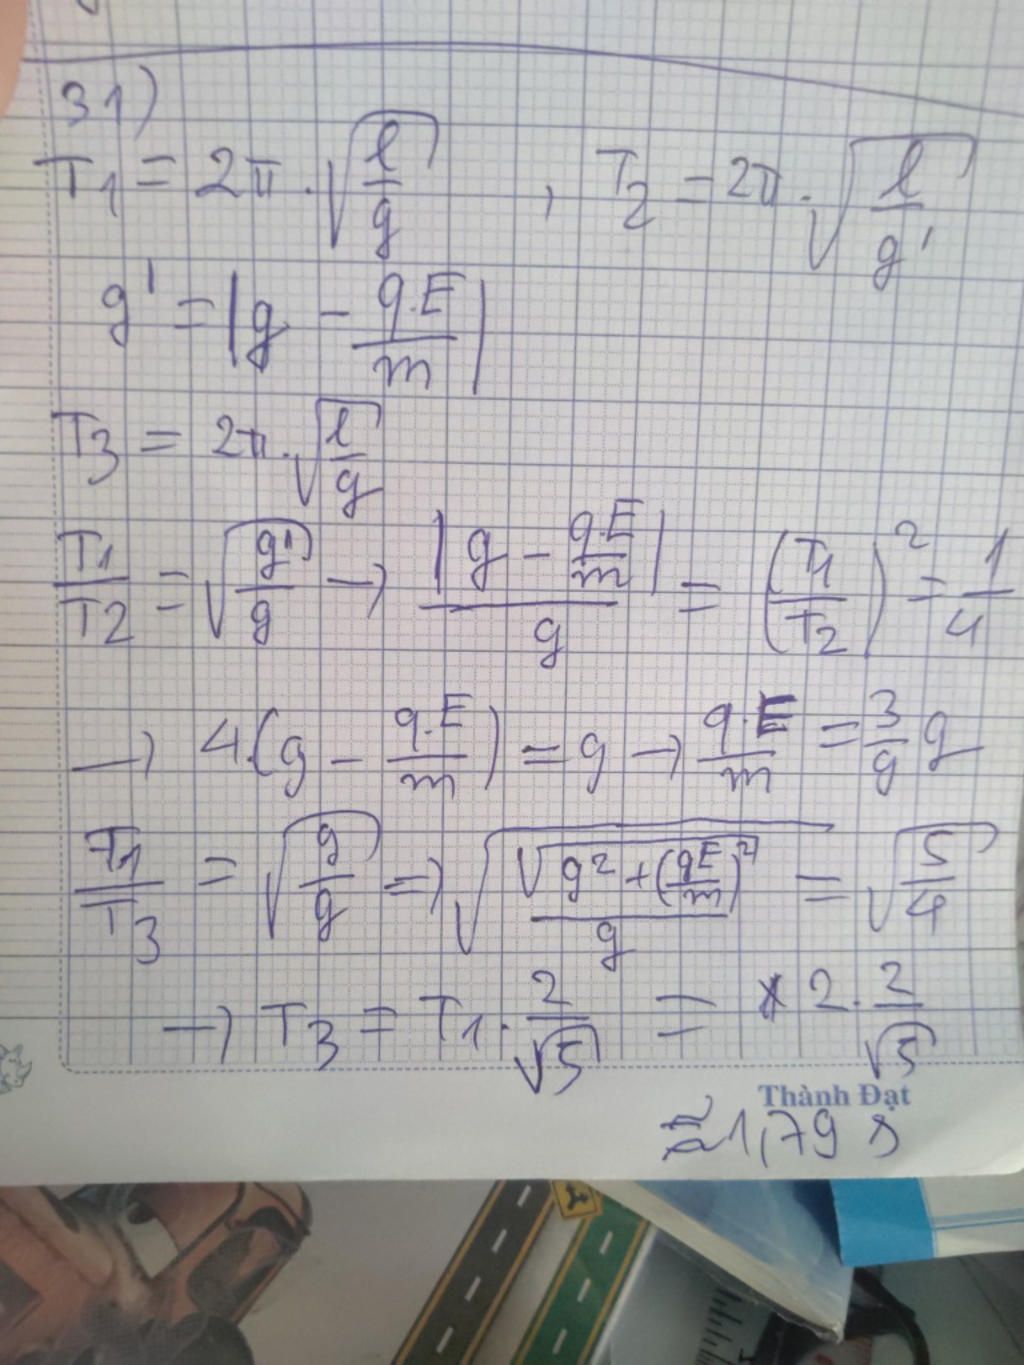 31)
T1 = 2π.√(l/g) , T2 = 2π.√(l/g')
g' = |g - q.E/m|
T3 = 2π.√(l/g)
T1/T2 = √(g'/g) → |g - q.E/m|/g = (T1/T2)² = 1/4
→ 4.(g - q.E/m) = g → q.E/m = 3/g g
T1/T3 = √(g/g) => √(√(g² + (qE/m)²)/g) = √(5/4)
→ T3 = T1.2/√5 = 2.2/√5
Thành Đạt
≈ 1,79 s